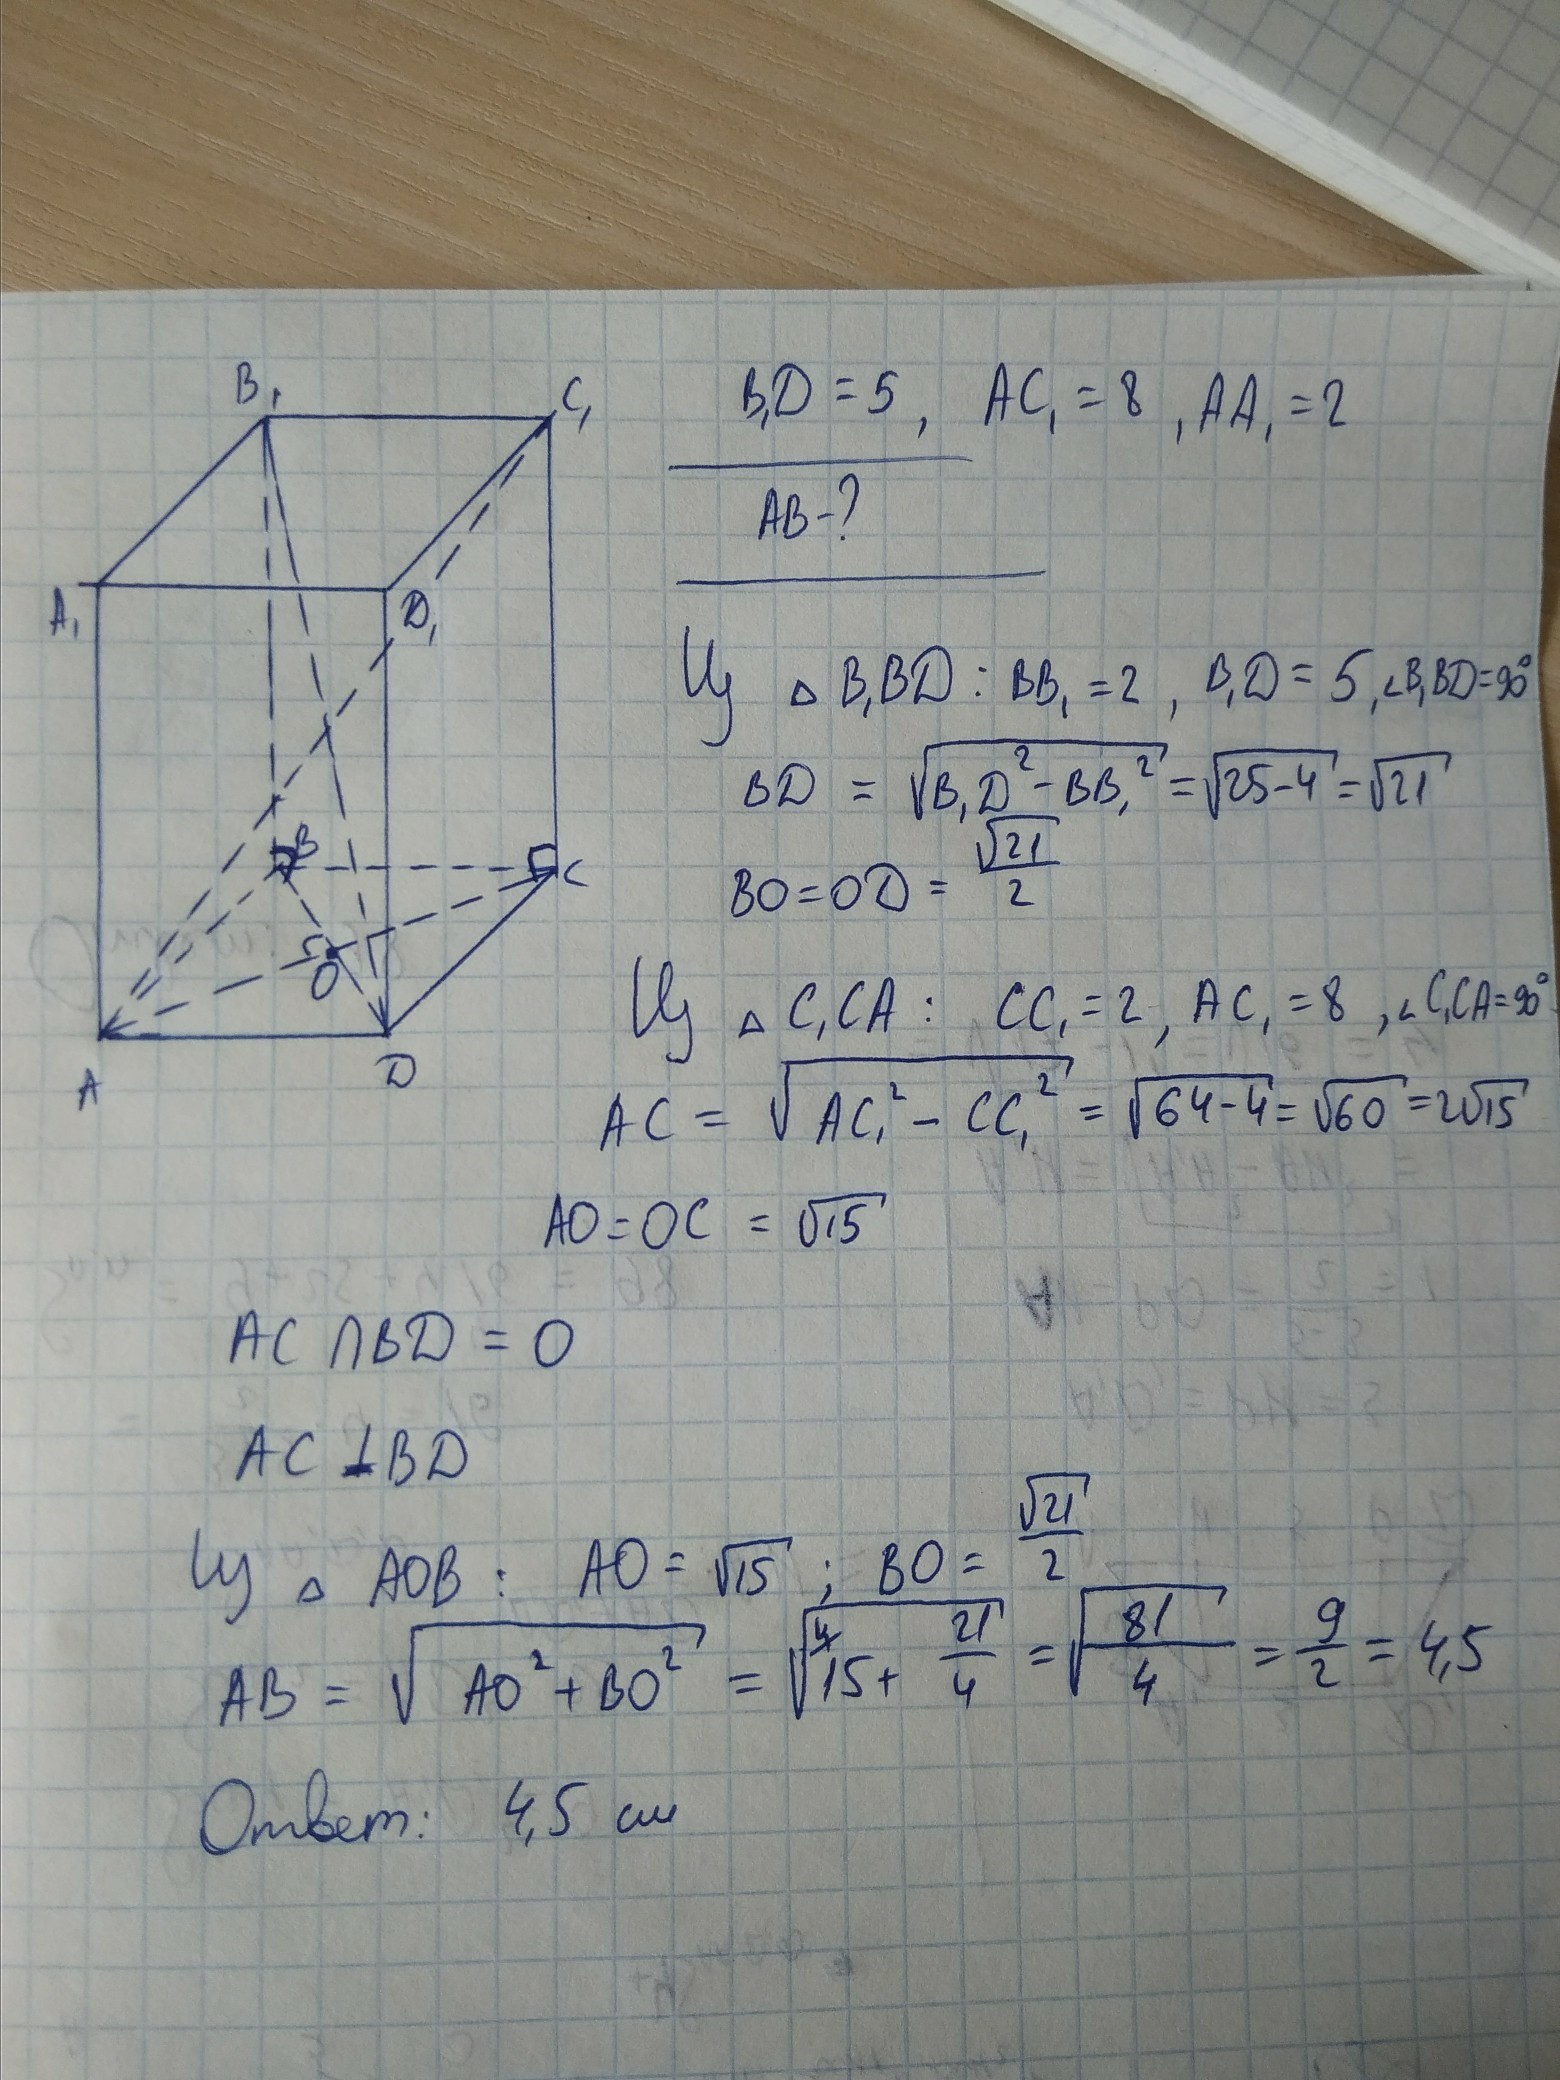 B₁ C₁
A₁ D₁
B C
O
A D
B₁D = 5, AC₁ = 8, AA₁ = 2
AB - ?
Из △ B₁BD : BB₁ = 2, B₁D = 5, ∠B₁BD = 90°
BD = √(B₁D² - BB₁²) = √(25-4) = √21
BO = OD = √21/2
Из △ C₁CA : CC₁ = 2, AC₁ = 8, ∠C₁CA = 90°
AC = √(AC₁² - CC₁²) = √(64-4) = √60 = 2√15
AO = OC = √15
AC ∩ BD = O
AC ⊥ BD
Из △ AOB : AO = √15 ; BO = √21/2
AB = √(AO² + BO²) = √(⁴⁄15 + 21/4) = √(81/4) = 9/2 = 4,5
Ответ: 4,5 см